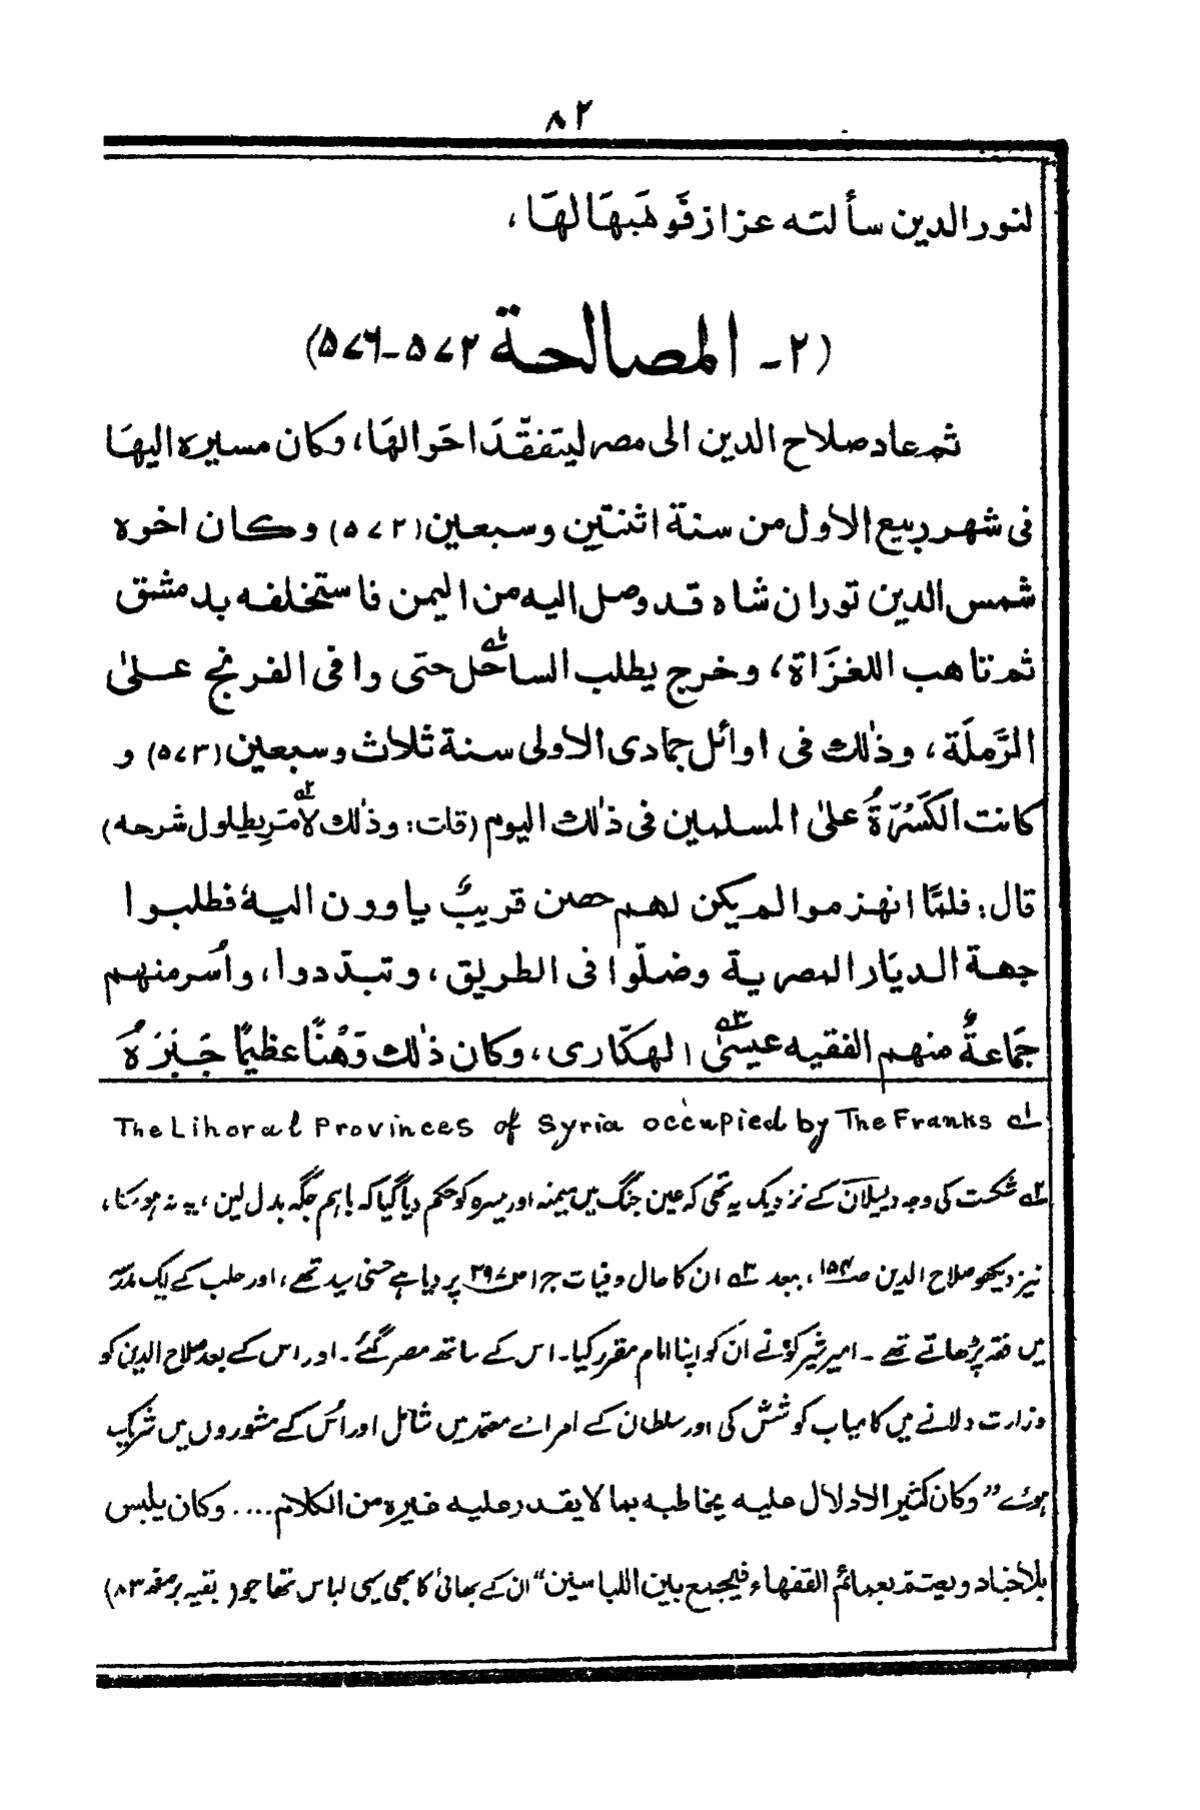 ۸۲
لنور الدین سألته عزاز فَوهَبهَا لهَا،
(۲ - المصالحة ۵۷۲-۵۷۶)
ثم عاد صلاح الدین الی مصر لیتفقّدَ احَوالهَا، وکان مسیره الیهَا
فی شهر ربیع الاول من سنة اثنتین وسبعین (۵۷۲) وکان اخوه
شمس الدین توران شاه قد وصل الیه من الیمن فاستخلفه بدمشق
ثم تاهب للغزَاة، وخرج یطلب الساحل۱ حتی وافی الفرنج علیٰ
الرَّملَة، وذٰلك فی اوائل جمادی الاولی سنة ثلاث وسبعین (۵۷۳) و
کانت الکَسْرَةُ علیٰ المسلمین فی ذٰلك الیوم (قلت: وذٰلك لأمرٍ۲ یطول شرحه)
قال: فلمَّا انهزموا لم یکن لهم حصن قریبٌ یاوون الیه فطلبوا
جهة الدیَار المصریة وضلّوا فی الطریق، وتبدّدوا، واُسر منهم
جَماعةٌ منهم الفقیه عیسیٰ۳ الهکّاری، وکان ذٰلك وَهْنًا عظیمًا جَبَرَهُ
۱ The Lihoral Provinces of Syria occupied by The Franks
۲ شکست کی وجہ ولیلان کے نزدیک یہ تھی کہ عین جنگ میں میمنہ اور میسرہ کو حکم دیا گیا کہ باہم جگہ بدل لین، یہ نہ ہو سکا،
نیز دیکھو صلاح الدین ص۱۵۴، ببعد ۳ ان کا حال وفیات ج۱ ص۳۹۷ پر دیا ہے حسنی سید تھے، اور حلب کے ایک مدرسہ
میں فقہ پڑھاتے تھے ۔ امیر شیرکوہ نے ان کو اپنا امام مقرر کیا۔ اس کے ساتھ مصر گئے ۔ اور اس کے بعد صلاح الدین کو
وزارت دلانے میں کامیاب کوشش کی اور سلطان کے امرائے معتمد میں شامل اور اُس کے مشوروں میں شریک
ہوئے ”وکان کثیر الادلال علیه یخاطبه بما لا یقدر علیه غیره من الکلام .... وکان یلبس
بلاجناد ویعتم بعمائم الفقهاء فیجمع بین اللباسین“ ان کے بھائی کا بھی یہی لباس تھا جو (بقیہ بر صفحہ ۸۳)